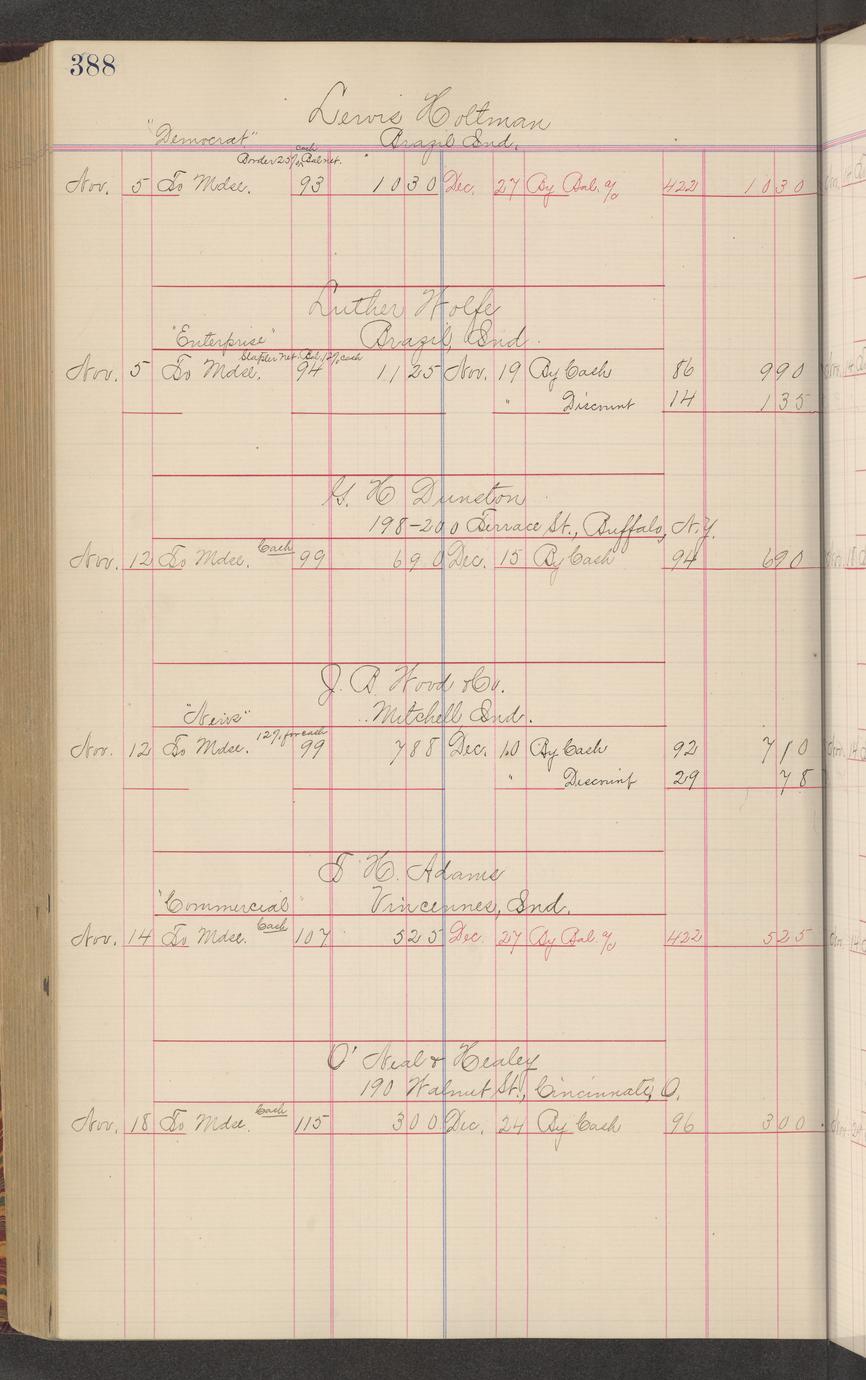 388
Lewis Holtman
"Democrat" Brazil Ind.
cash
Border 25% Bal net.
Nov. 5 To Mdse. 93 10 30 Dec. 27 By Bal. a/c 422 10 30
Luther Wolfe
"Enterprise" Brazil, Ind.
net. Bal. 12% cash
Nov. 5 To Mdse. 94 11 25 Nov. 19 By Cash 86 9 90
" Discount 14 1 35
G. H Dunston
198-200 Terrace St., Buffalo, N.Y.
Nov. 12 To Mdse. Cash 99 6 90 Dec. 15 By Cash 94 6 90
J. B. Wood & Co.
"News" Mitchell, Ind.
Nov. 12 To Mdse. 12% for cash 99 7 88 Dec. 10 By Cash 92 7 10
" Discount 29 78
T. H. Adams
"Commercial" Vincennes, Ind.
Nov. 14 To Mdse. Cash 107 5 25 Dec. 27 By Bal. a/c 422 5 25
O'Neal & Healey
190 Walnut St., Cincinnati, O.
Nov. 18 To Mdse. Cash 115 3 00 Dec. 24 By Cash 96 3 00